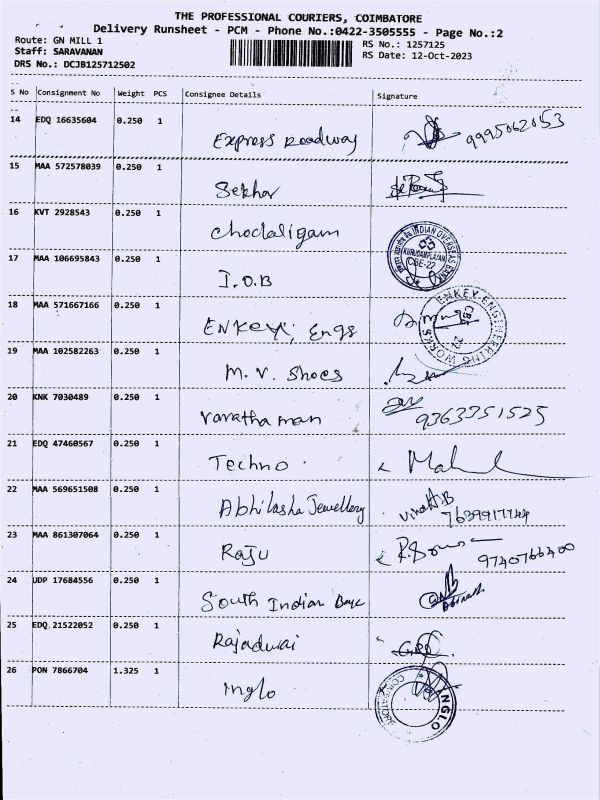 THE PROFESSIONAL COURIERS, COIMBATORE
Delivery Runsheet - PCM - Phone No.:0422-3505555 - Page No.:2
Route: GN MILL 1
Staff: SARAVANAN
DRS No.: DCJB125712502
RS No.: 1257125
RS Date: 12-Oct-2023
S No Consignment No Weight PCS Consignee Details Signature
14 EDQ 16635604 0.250 1 Express Roadway 9995062053
15 MAA 572578039 0.250 1 Sekhar
16 KVT 2928543 0.250 1 Choclaligam
INDIAN OVERSEAS BANK
KURUDAMPALAYAM
CBE-22
17 MAA 106695843 0.250 1 I.O.B
18 MAA 571667166 0.250 1 ENKEY, Engs
ENKEY ENGINEERING WORKS
CBE 22
19 MAA 102582263 0.250 1 M.V. Shoes
20 KNK 7030489 0.250 1 Varatha man 9363351525
21 EDQ 47460567 0.250 1 Techno
22 MAA 569651508 0.250 1 Abhilasha Jewellery
23 MAA 861307064 0.250 1 Raju 9740766400
24 UDP 17684556 0.250 1 South Indian
25 EDQ 21522052 0.250 1 Rajadurai
26 PON 7866704 1.325 1 Inglo
INGLO